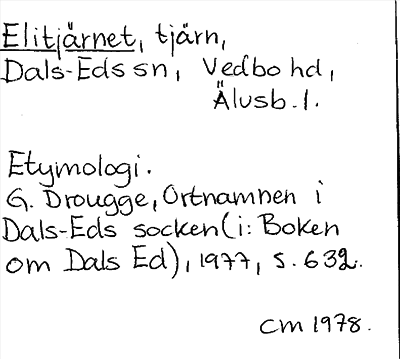 Elitjärnet, tjärn,
Dals-Eds sn, Vedbo hd,
Älvsb. l.
Etymologi.
G. Drougge, Ortnamnen i
Dals-Eds socken (i: Boken
om Dals Ed), 1977, s. 632.
CM 1978.